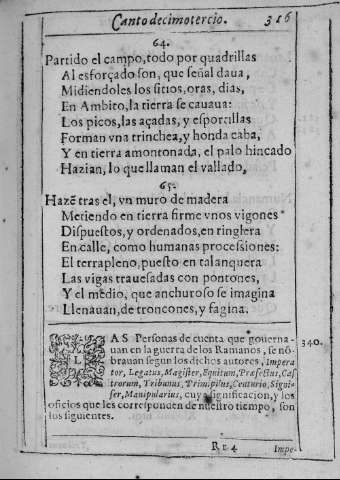 Canto decimotercio. 316
64.
Partido el campo, todo por quadrillas
Al esforçado son, que señal daua,
Midiendoles los sitios, oras, dias,
En Ambito, la tierra se cauaua:
Los picos, las açadas, y esporcillas
Forman vna trinchea, y honda caba,
Y en tierra amontonada, el palo hincado
Hazian, lo que llaman el vallado,
65.
Hazẽ tras el, vn muro de madera
Metiendo en tierra firme vnos vigones
Dispuestos, y ordenados, en ringlera
En calle, como humanas processiones:
El terrapleno, puesto en talanquera
Las vigas trauesadas con pontones,
Y el medio, que anchuroso se imagina
Llenauan, de troncones, y fagina.
LAS Personas de cuenta que gouerna-
uan en la guerra de los Romanos, se nõ-
brauan segun los dichos autores, Impera
tor, Legatus, Magister, Equitum, Præfectus, Cas
trorum, Tribunus, Primipilus, Centurio, Signi-
fer, Manipularius, cuya significacion, y los
oficios que les corresponden de nuestro tiempo, son
los siguientes.
340.
Rr 4 Impe-